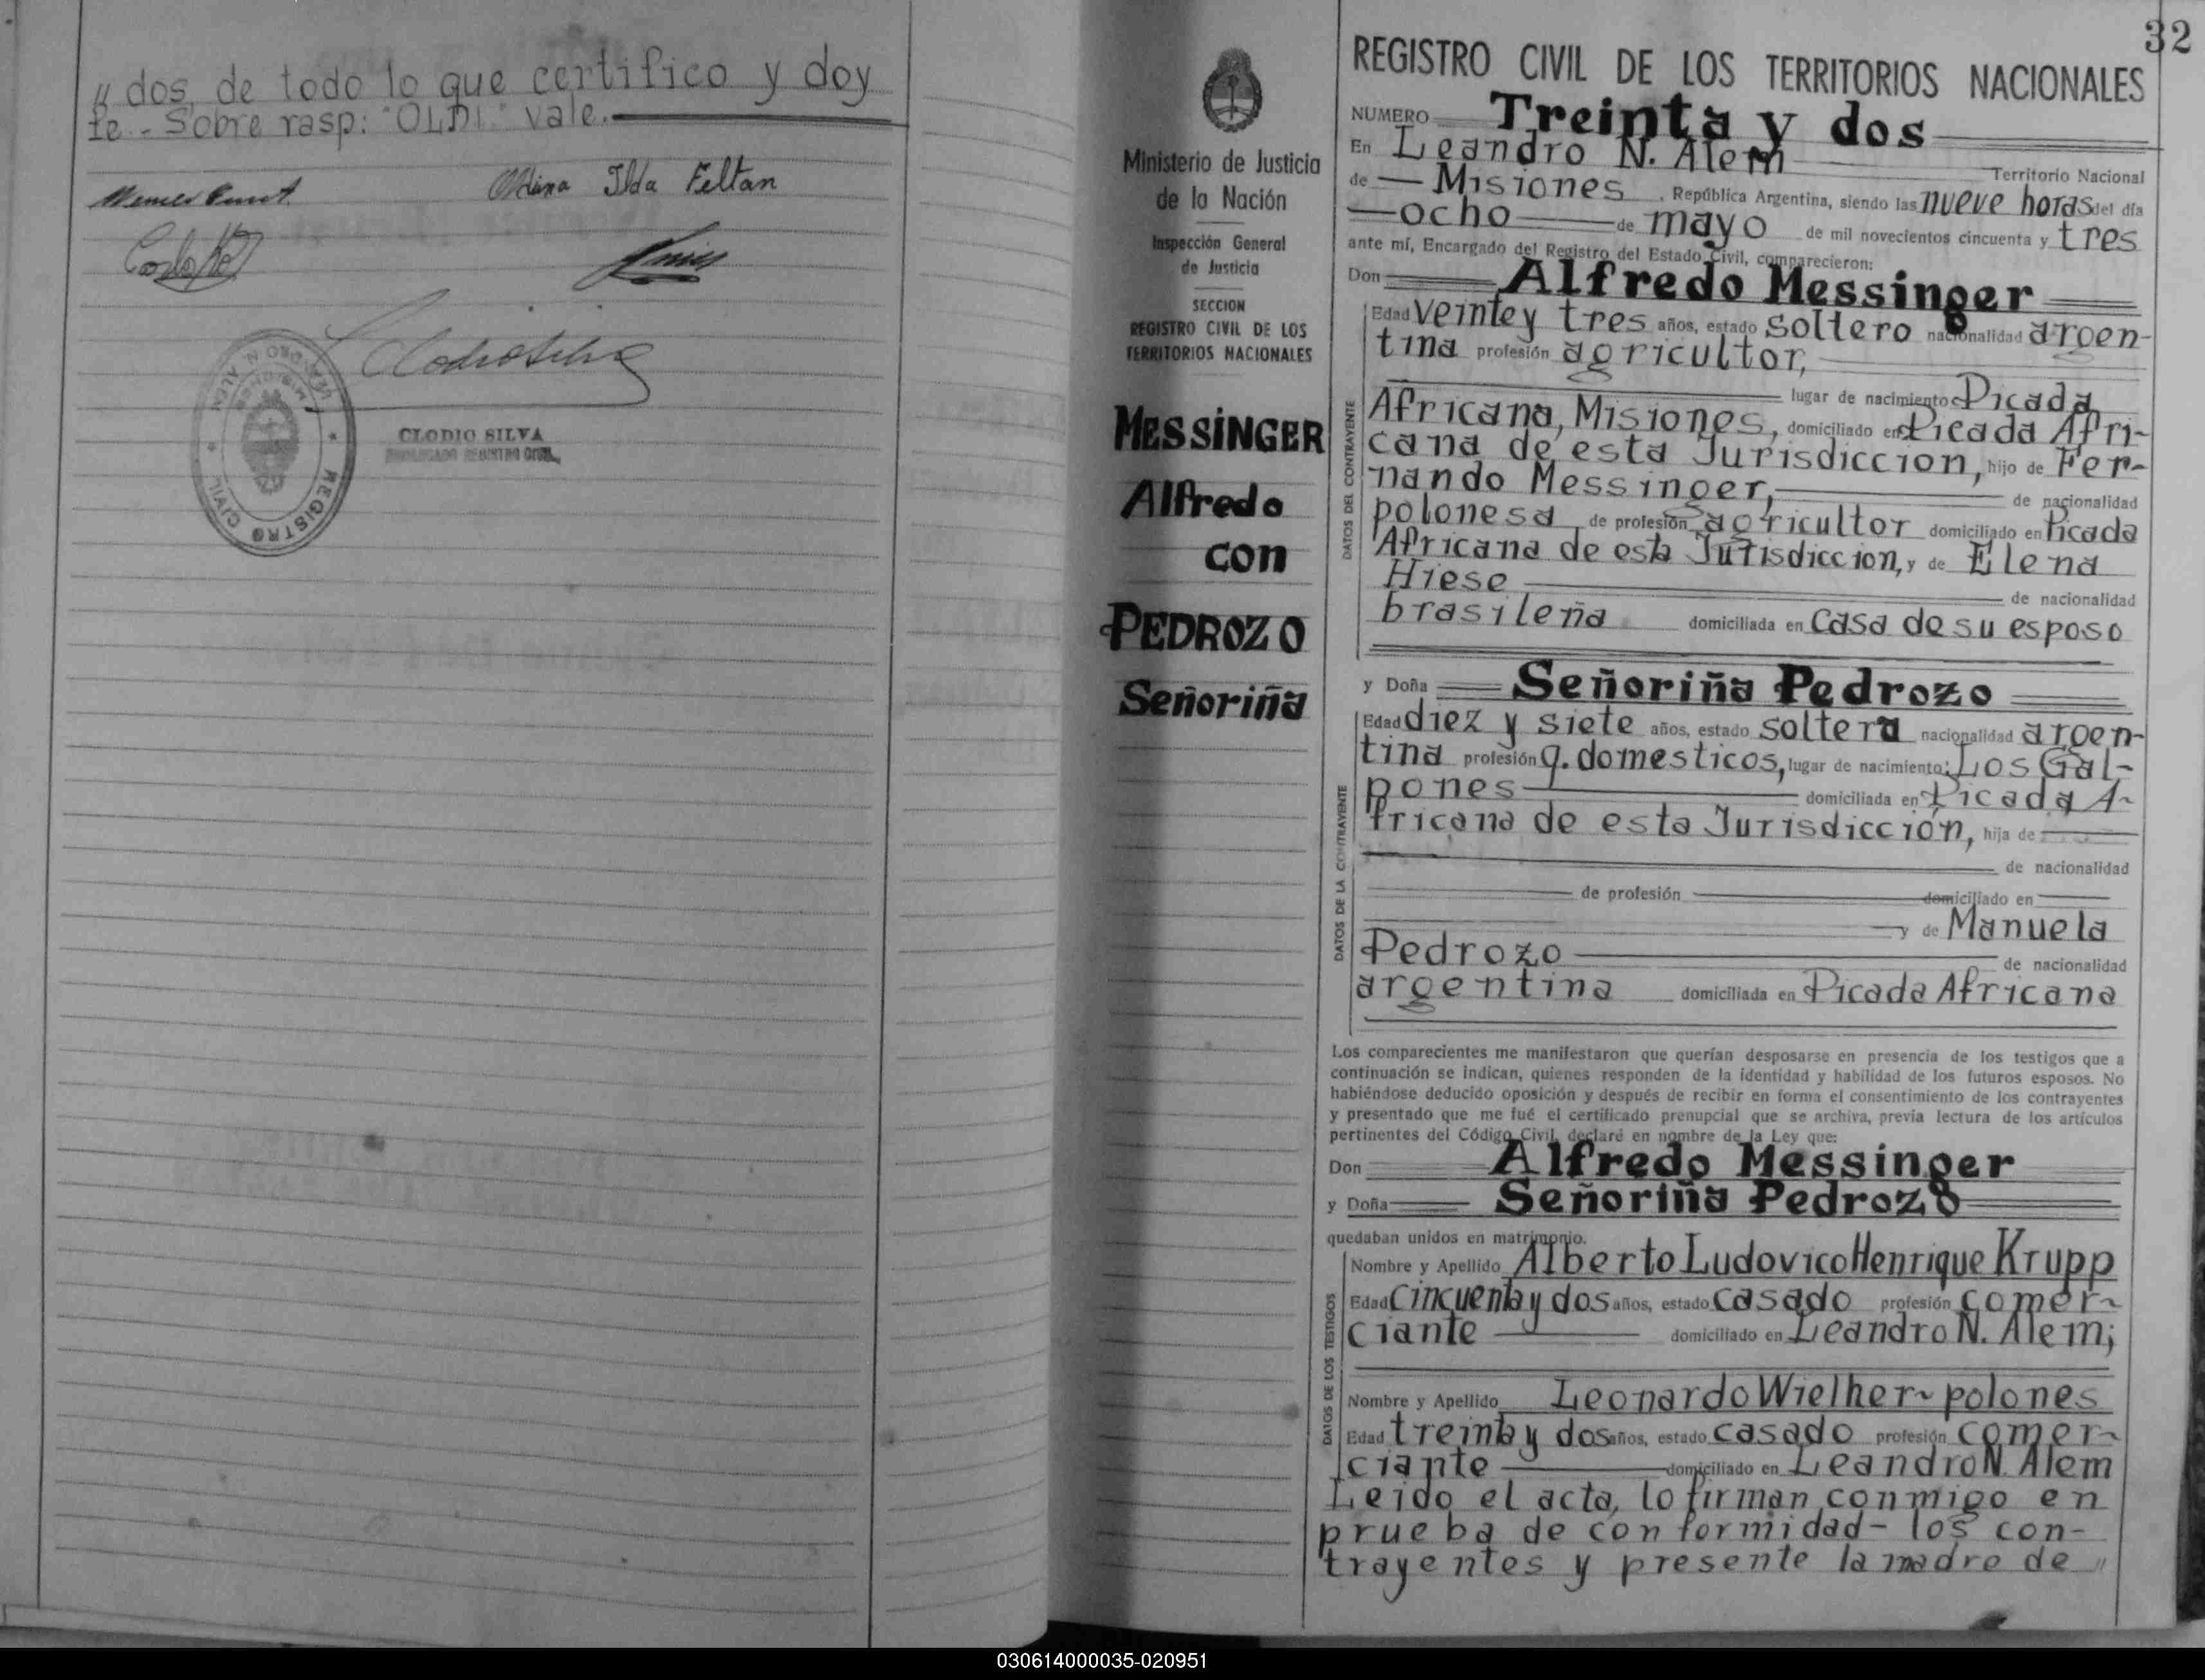 y dos, de todo lo que certifico y doy
fe.- Sobre rasp: "OLDI" vale.
Odina Ilda Feltan
LEANDRO N. ALEM
MISIONES
REGISTRO CIVIL
CLODIO SILVA
ENCARGADO REGISTRO CIVIL
32
Ministerio de Justicia
de la Nación
Inspección General
de Justicia
SECCION
REGISTRO CIVIL DE LOS
TERRITORIOS NACIONALES
MESSINGER
Alfredo
con
PEDROZO
Señoriña
REGISTRO CIVIL DE LOS TERRITORIOS NACIONALES
NUMERO Treinta y dos
En Leandro N. Alem Territorio Nacional
de Misiones, República Argentina, siendo las nueve horas del día
ocho de mayo de mil novecientos cincuenta y tres
ante mí, Encargado del Registro del Estado Civil, comparecieron:
Don Alfredo Messinger
DATOS DEL CONTRAYENTE
Edad veinte y tres años, estado soltero nacionalidad argen-
tina profesión agricultor,
lugar de nacimiento Picada
Africana, Misiones, domiciliado en Picada Afri-
cana de esta Jurisdiccion, hijo de Fer-
nando Messinger, de nacionalidad
polonesa de profesión agricultor domiciliado en Picada
Africana de esta Jurisdiccion, y de Elena
Hiese de nacionalidad
brasileña domiciliada en casa de su esposo
y Doña Señoriña Pedrozo
DATOS DE LA CONTRAYENTE
Edad diez y siete años, estado soltera nacionalidad argen-
tina profesión q. domesticos, lugar de nacimiento: Los Gal-
pones domiciliada en Picada A-
fricana de esta Jurisdicción, hija de
de nacionalidad
de profesión domiciliado en
y de Manuela
Pedrozo de nacionalidad
argentina domiciliada en Picada Africana
Los comparecientes me manifestaron que querían desposarse en presencia de los testigos que a
continuación se indican, quienes responden de la identidad y habilidad de los futuros esposos. No
habiéndose deducido oposición y después de recibir en forma el consentimiento de los contrayentes
y presentado que me fué el certificado prenupcial que se archiva, previa lectura de los artículos
pertinentes del Código Civil, declaré en nombre de la Ley que:
Don Alfredo Messinger
y Doña Señoriña Pedrozo
quedaban unidos en matrimonio.
DATOS DE LOS TESTIGOS
Nombre y Apellido Alberto Ludovico Henrique Krupp
Edad cincuenta y dos años, estado casado profesión comer-
ciante domiciliado en Leandro N. Alem;
Nombre y Apellido Leonardo Wielher- polones
Edad treinta y dos años, estado casado profesión comer-
ciante domiciliado en Leandro N. Alem
Leido el acta, lo firman conmigo en
prueba de conformidad- los con-
trayentes y presente la madre de "
030614000035-020951